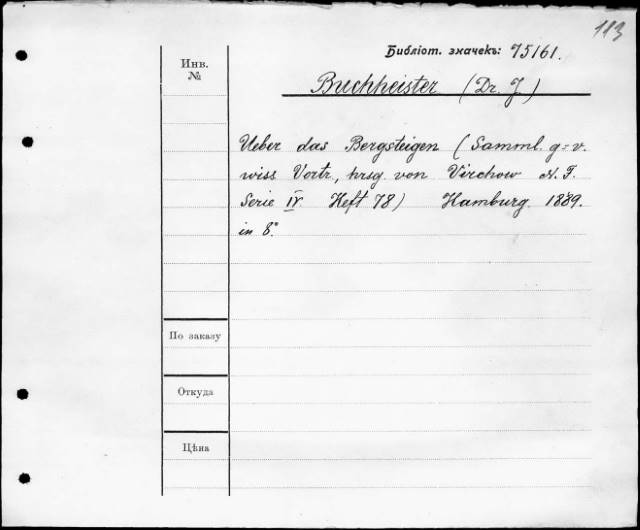 113
Библіот. значекъ: 75161.
Инв.
№
Buchheister (Dr. J.)
Ueber das Bergsteigen (Samml. g=v.
wiss Vortr., hrsg. von Virchow N. F.
Serie IV. Heft 78) Hamburg. 1889.
in 8°.
По заказу
Откуда
Цѣна